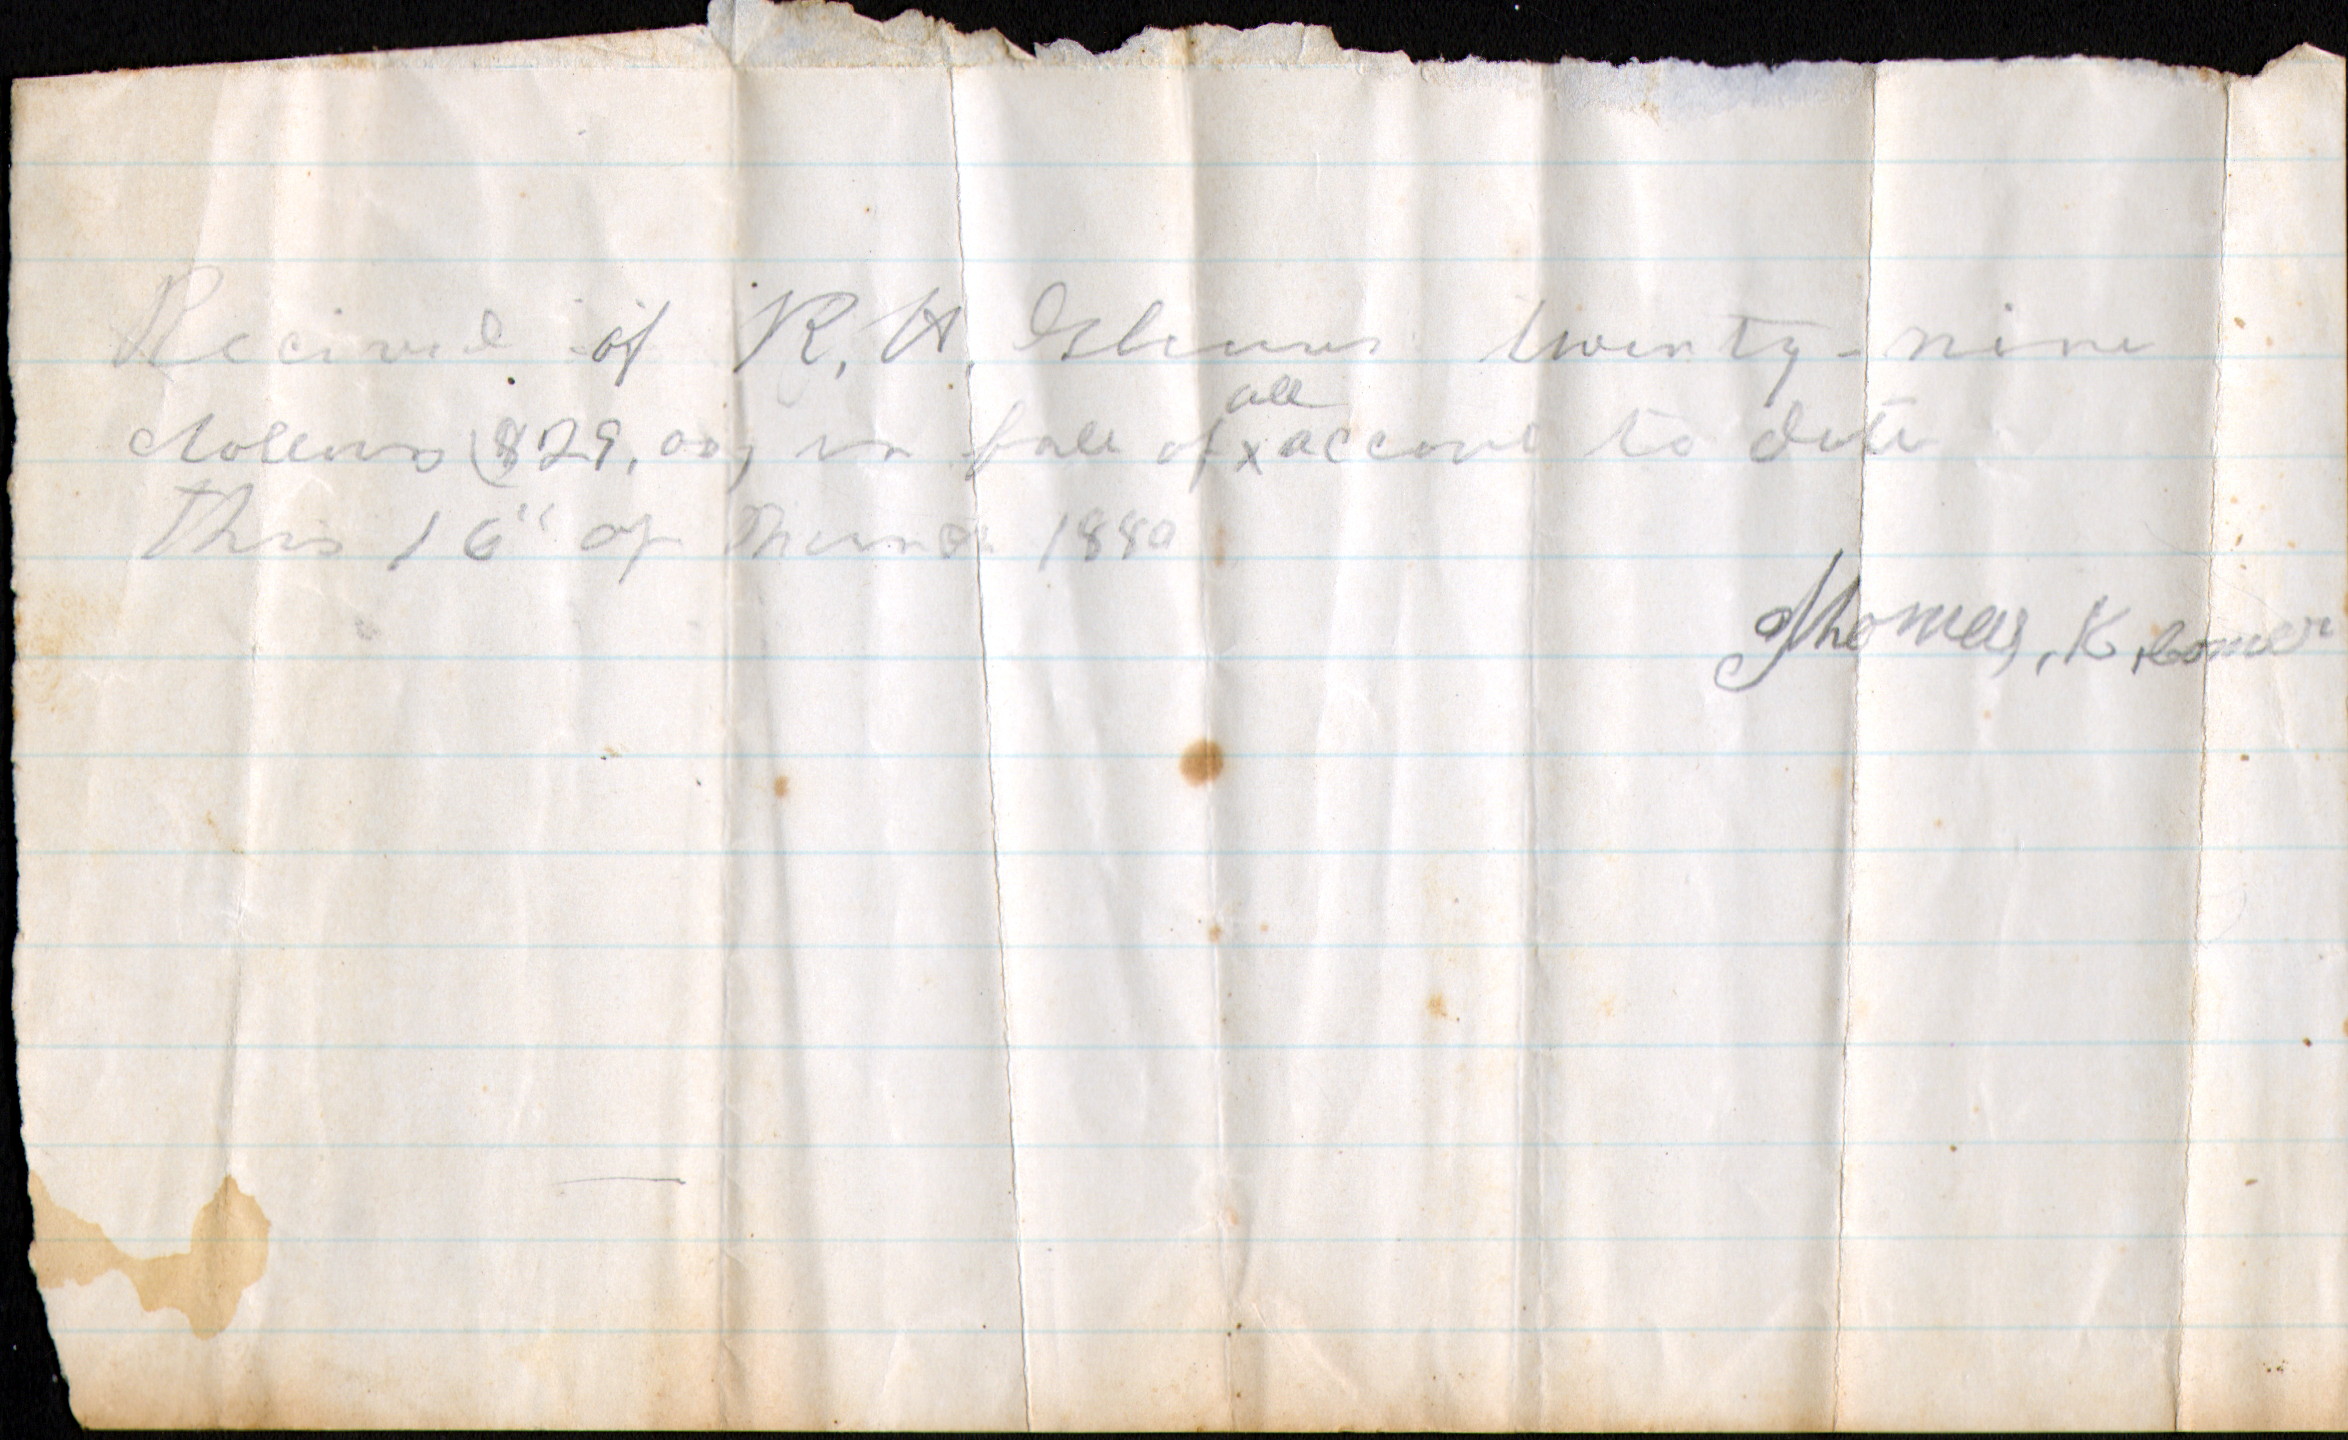 Recived of R. H. Glenn twenty-nine
all
dollars ($29.00) in full of x accont to date
This 16" of 1880
Thomas, K, Comer